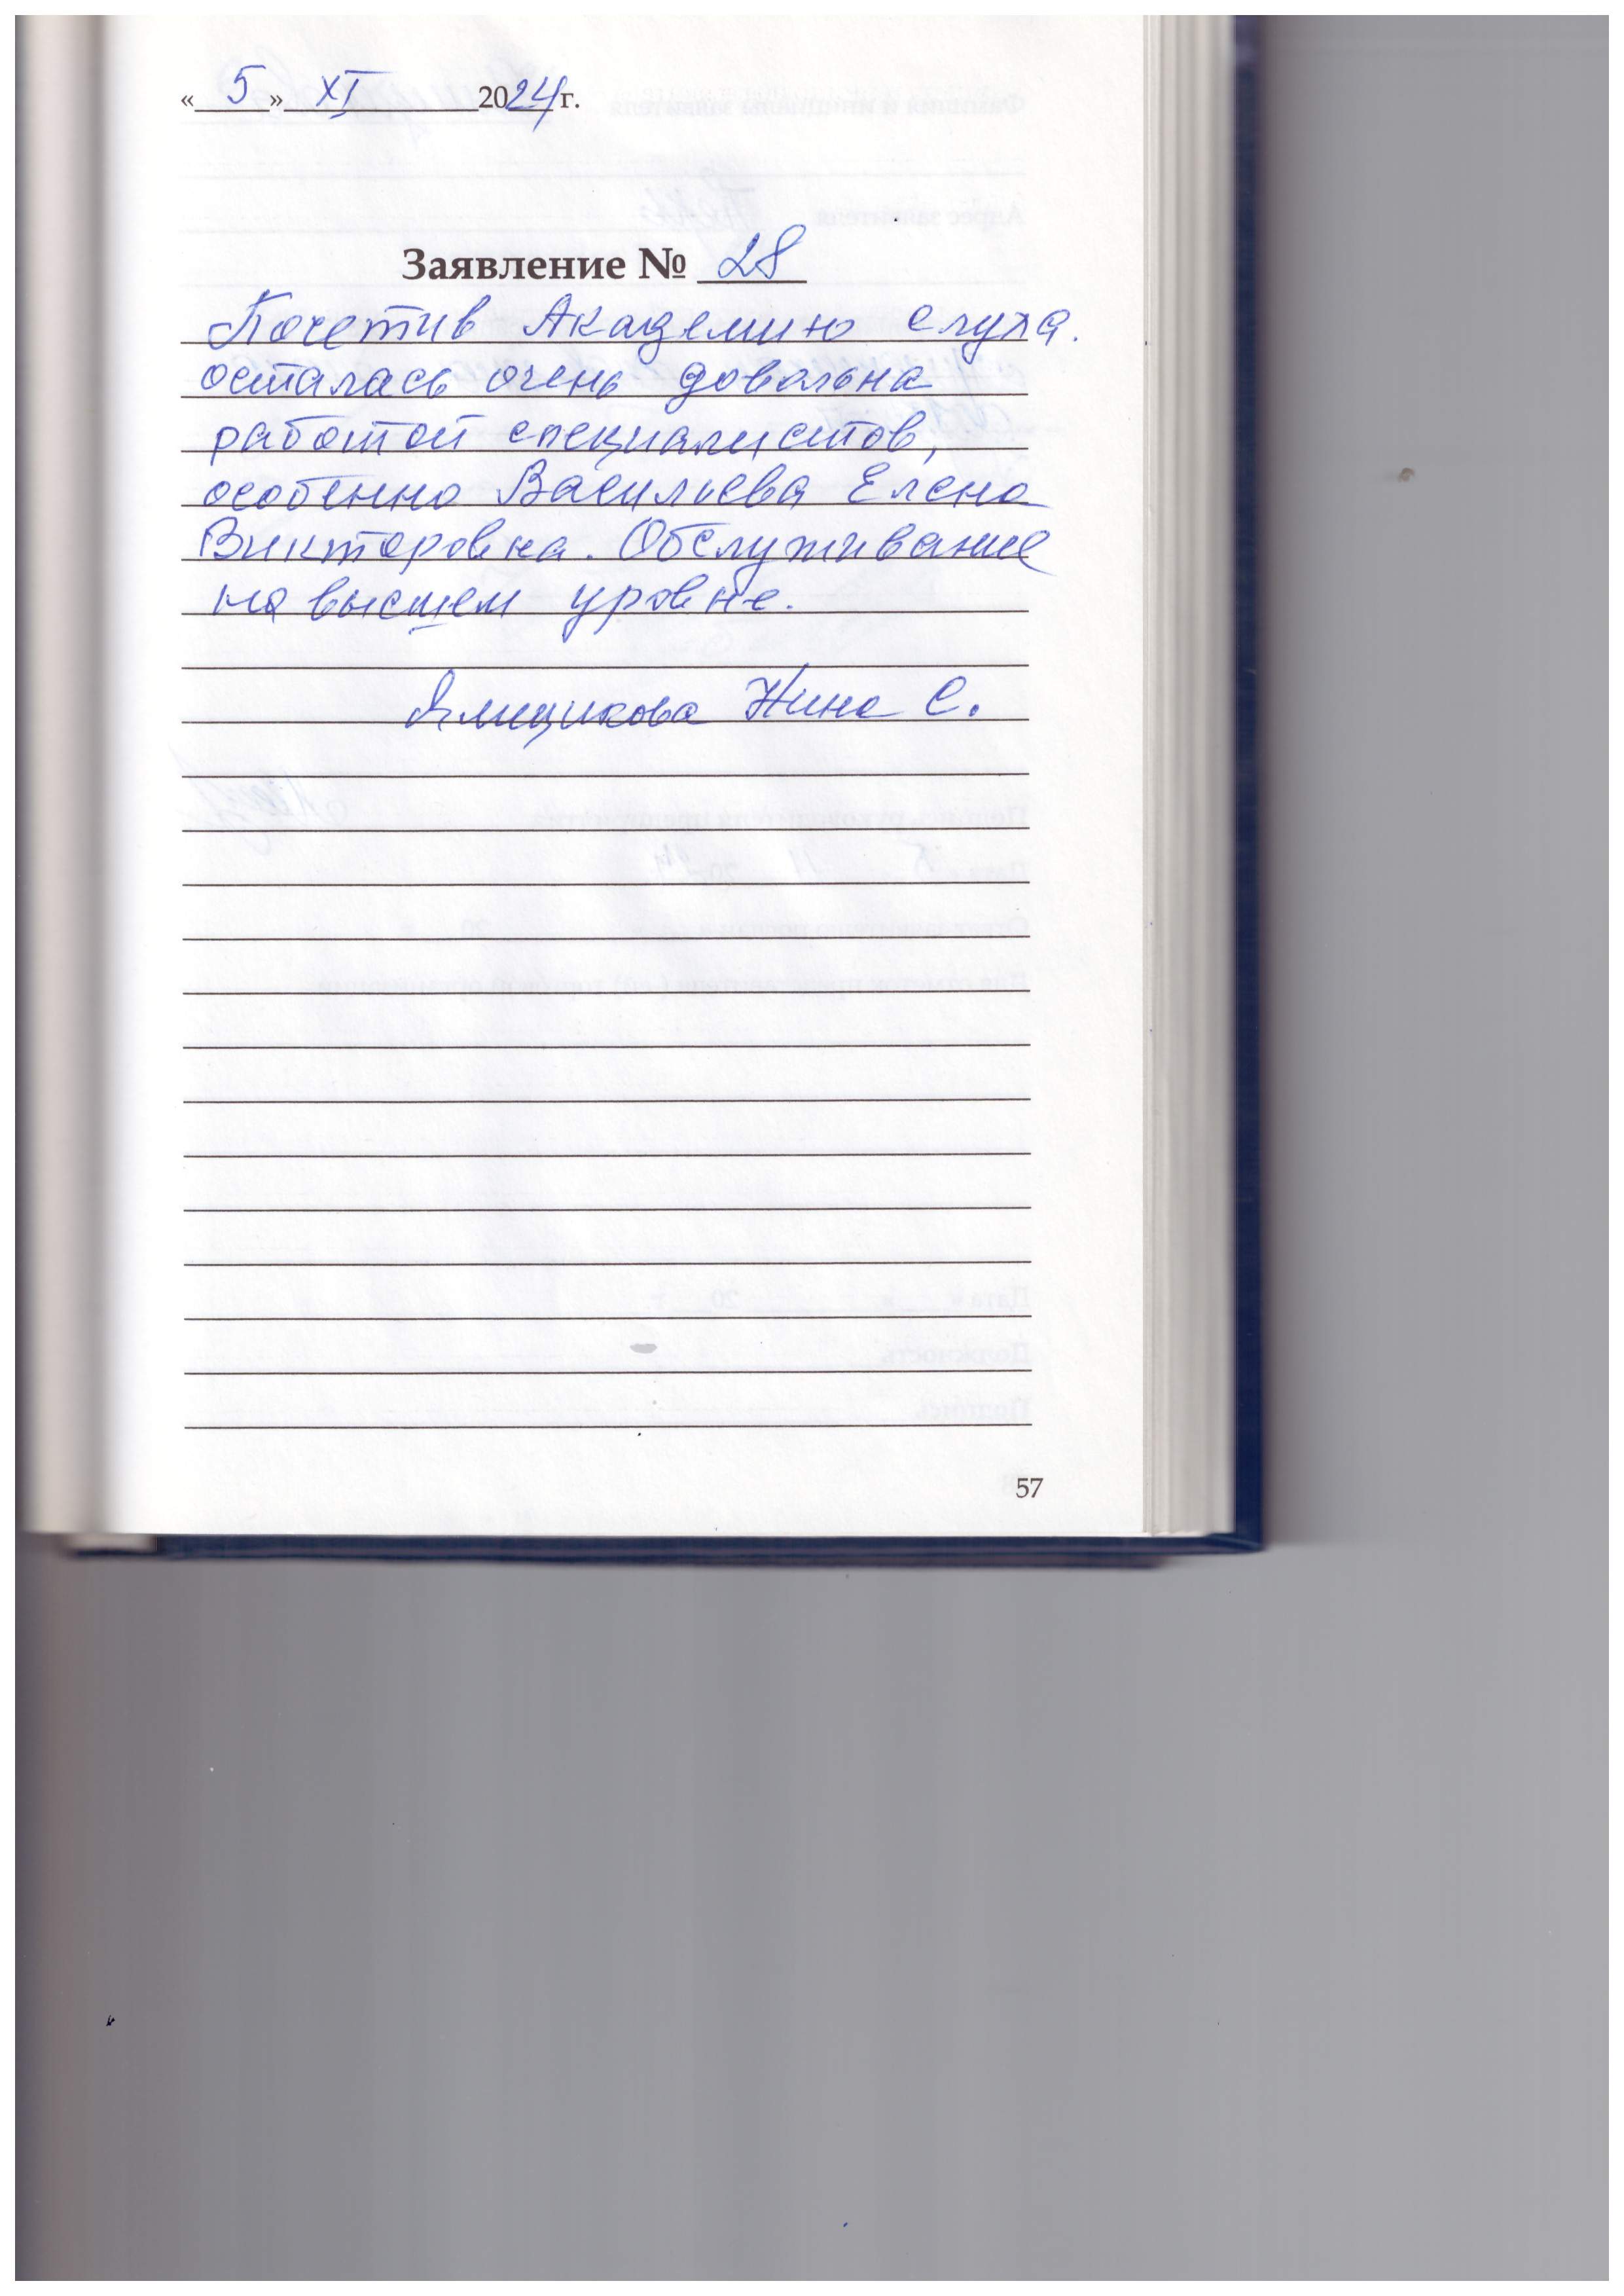 « 5 » XI 2024 г.
Заявление № 28
Посетив Академию слуха.
осталась очень довольна
работой специалистов,
особенно Васильева Елена
Викторовна. Обслуживание
на высшем уровне.
Ямщикова Нина С.
57